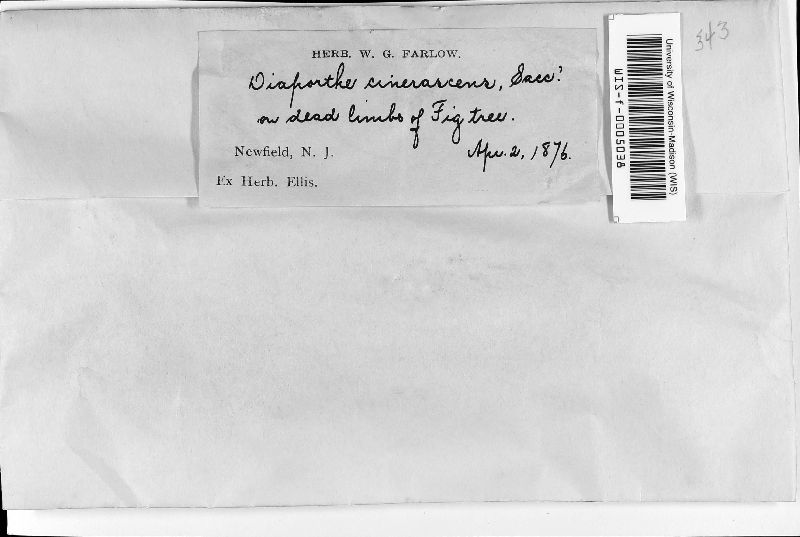 HERB. W. G. FARLOW.
Diaporthe cinerascens, Sacc?
on dead limbs of Fig tree.
Newfield, N. J. Apr. 2, 1876.
Ex Herb. Ellis.
University of Wisconsin-Madison (WIS)
WIS-f-0005038
343